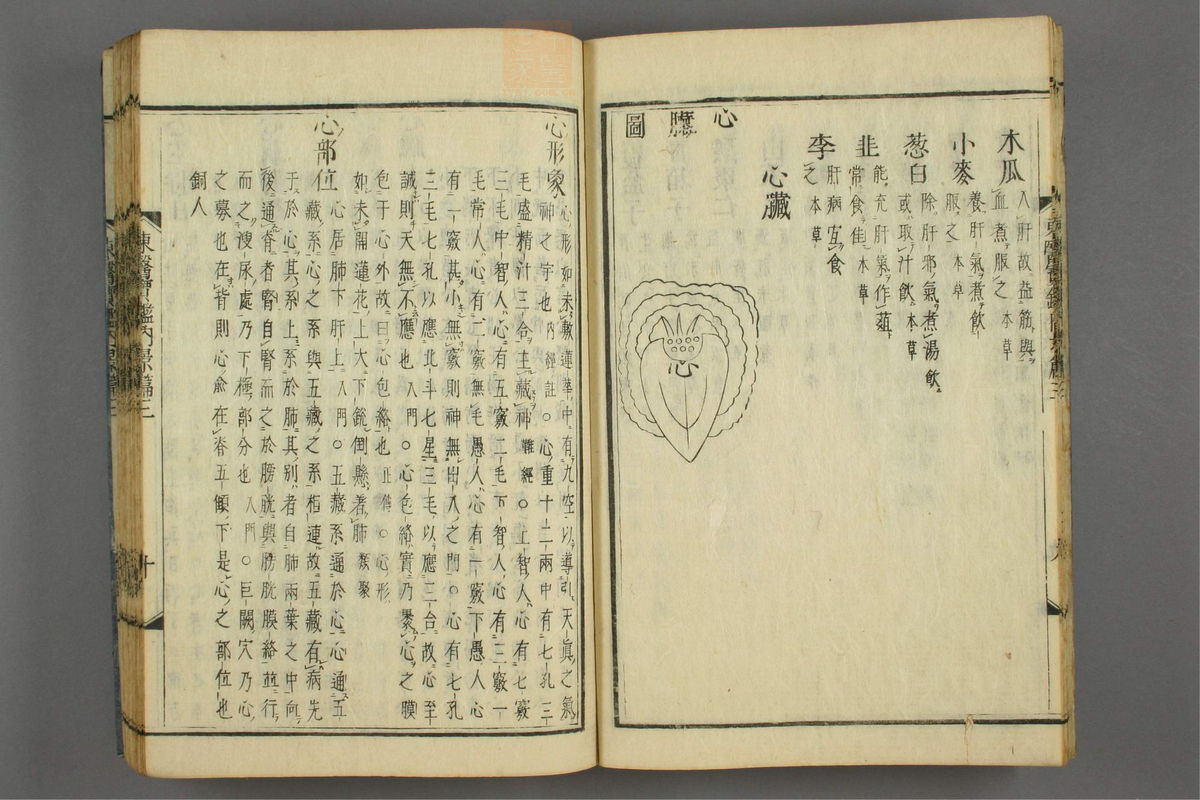 木瓜 入肝故益筋與
血煮服之 本草
小麥 養肝氣煮飲
服之 本草
葱白 除肝邪氣煮湯飲
或取汁飲 本草
韭 能充肝氣作葅
常食佳 本草
李 肝病宜食
之 本草
心臟
心臟圖
心
心形象 心形如未敷蓮華中有九空以導引天眞之氣
神之宇也 內經註 ○心重十二兩中有七孔三
毛盛精汁三合主藏神 難經 ○上智人心有七竅
三毛中智人心有五竅二毛下智人心有三竅一
毛常人心有二竅無毛愚人心有一竅下愚人心
有一竅甚小無竅則神無出入之門○心有七孔
三毛七孔以應北斗七星三毛以應三合故心至
誠則天無不應也 入門 ○心包絡實乃裹心之膜
包于心外故曰心包絡也 正傳 ○心形
如未開蓮花上大下銳倒懸著肺 類聚
心部位 心居肺下肝上 入門 ○五藏系通於心心通五
藏系心之系與五藏之系相連故五藏有病先
于於心其系上系於肺其別者自肺兩葉之中向
後通脊者腎自腎而之於膀胱與膀胱膜絡並行
而之溲尿處乃下極部分也 入門 ○巨闕穴乃心
之募也在背則心兪在脊五顀下是心之部位也
銅人
東醫寶鑑內景篇三 十